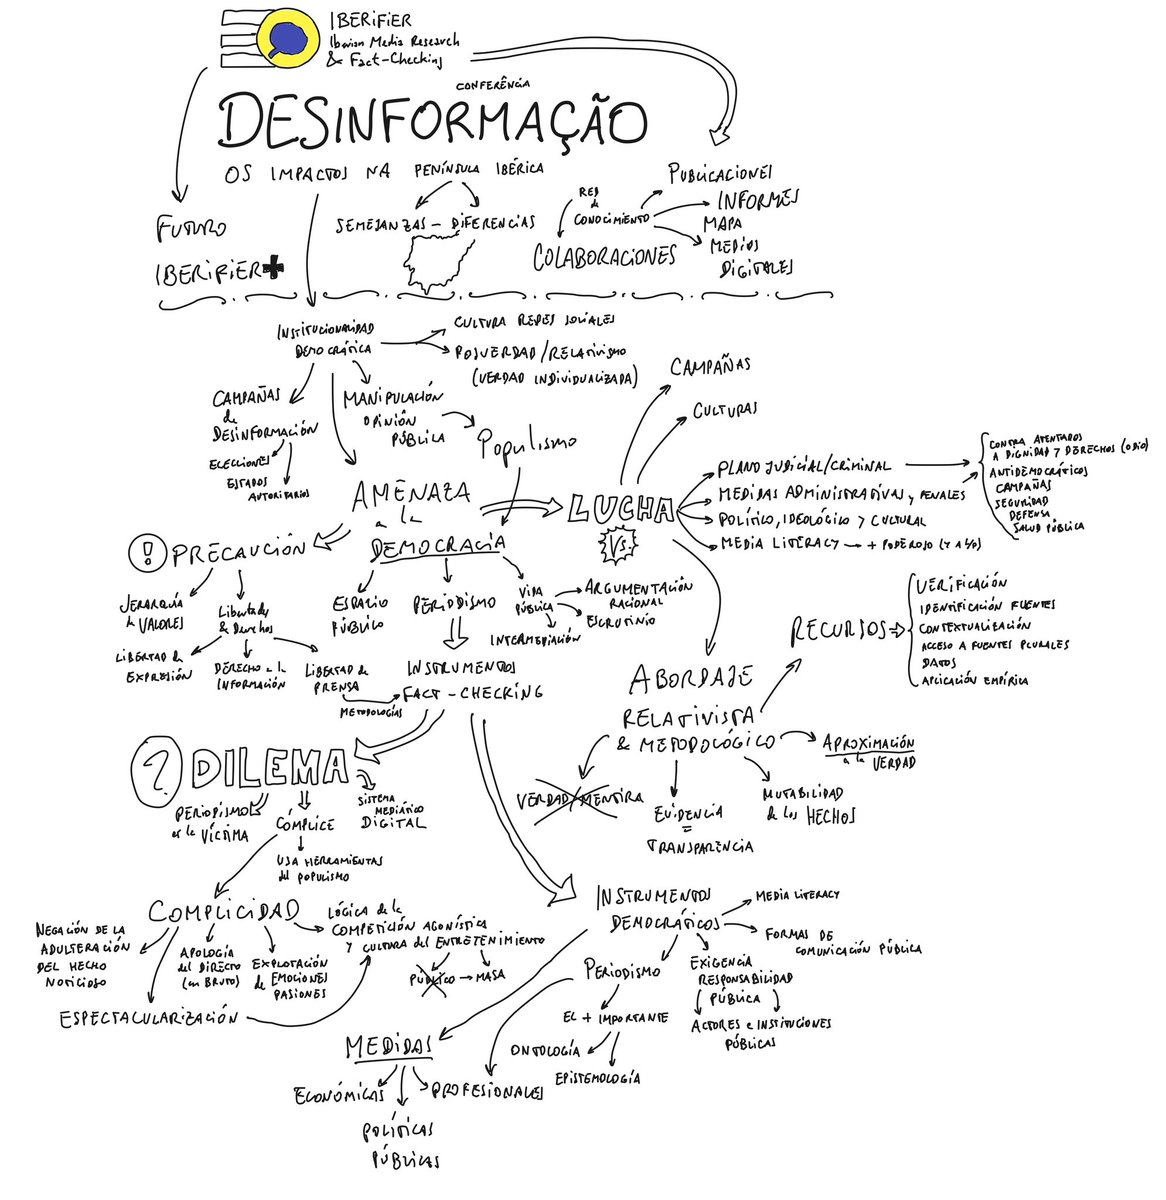 IBERIFIER
Iberian Media Research
& Fact-Checking
CONFERÊNCIA
DESINFORMAÇÃO
OS IMPACTOS NA PENÍNSULA IBÉRICA
FUTURO
IBERIFIER+
SEMEJANZAS - DIFERENCIAS
RED
de
CONOCIMIENTO
COLABORACIONES
PUBLICACIONES
INFORMES
MAPA
MEDIOS
DIGITALES
INSTITUCIONALIDAD
DEMOCRÁTICA
CULTURA REDES SOCIALES
POSVERDAD/RELATIVISMO
(VERDAD INDIVIDUALIZADA)
CAMPAÑAS
de
DESINFORMACIÓN
ELECCIONES
ESTADOS
AUTORITARIOS
MANIPULACIÓN
OPINIÓN
PÚBLICA
POPULISMO
AMENAZA
a la
DEMOCRACIA
LUCHA
VS.
CAMPAÑAS
CULTURAS
PLANO JUDICIAL/CRIMINAL
MEDIDAS ADMINISTRATIVAS y PENALES
POLÍTICO, IDEOLÓGICO Y CULTURAL
MEDIA LITERACY → + PODEROSO (Y A L/P)
CONTRA ATENTADOS
A DIGNIDAD Y DERECHOS (ODIO)
ANTIDEMOCRÁTICOS
CAMPAÑAS
SEGURIDAD
DEFENSA
SALUD PÚBLICA
! PRECAUCIÓN
JERARQUÍA
de VALORES
Libertades
& Derechos
LIBERTAD de
EXPRESIÓN
DERECHO a la
INFORMACIÓN
LIBERTAD de
PRENSA
METODOLOGÍAS
ESPACIO
PÚBLICO
PERIODISMO
VIDA
PÚBLICA
ARGUMENTACIÓN
RACIONAL
ESCRUTINIO
INTERMEDIACIÓN
INSTRUMENTOS
FACT-CHECKING
ABORDAJE
RELATIVISTA
& METODOLÓGICO
RECURSOS
VERIFICACIÓN
IDENTIFICACIÓN FUENTES
CONTEXTUALIZACIÓN
ACCESO A FUENTES PLURALES
DATOS
APLICACIÓN EMPÍRICA
APROXIMACIÓN
a la VERDAD
MUTABILIDAD
de los HECHOS
EVIDENCIA
=
TRANSPARENCIA
VERDAD/MENTIRA
? DILEMA
PERIODISMO
es la VÍCTIMA
CÓMPLICE
USA HERRAMIENTAS
del POPULISMO
SISTEMA
MEDIÁTICO
DIGITAL
COMPLICIDAD
NEGACIÓN DE LA
ADULTERACIÓN
DEL HECHO
NOTICIOSO
APOLOGÍA
del DIRECTO
(en BRUTO)
EXPLOTACIÓN
de EMOCIONES
PASIONES
LÓGICA de la
COMPETICIÓN AGONÍSTICA
Y CULTURA del ENTRETENIMIENTO
PÚBLICO → MASA
ESPECTACULARIZACIÓN
INSTRUMENTOS
DEMOCRÁTICOS
MEDIA LITERACY
FORMAS DE
COMUNICACIÓN PÚBLICA
EXIGENCIA
RESPONSABILIDAD
PÚBLICA
ACTORES e INSTITUCIONES
PÚBLICAS
PERIODISMO
EL + IMPORTANTE
ONTOLOGÍA
EPISTEMOLOGÍA
MEDIDAS
ECONÓMICAS
POLÍTICAS
PÚBLICAS
PROFESIONALES